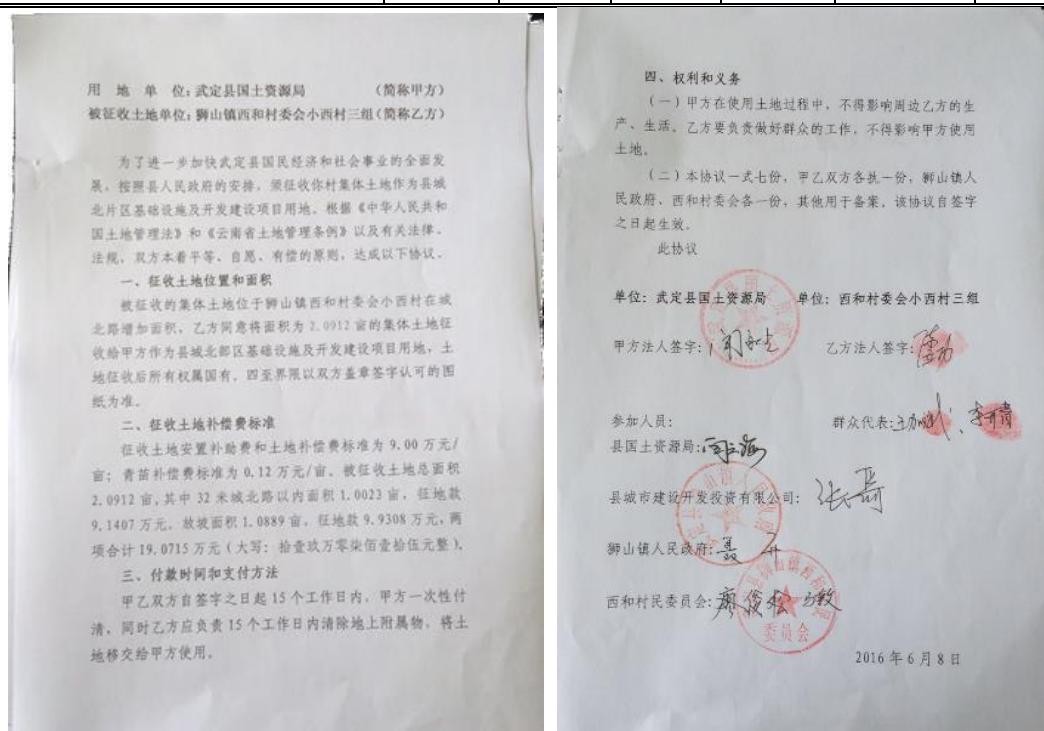 用 地 单 位：武定县国土资源局 （简称甲方）
被征收土地单位：狮山镇西和村委会小西村三组（简称乙方）
为了进一步加快武定县国民经济和社会事业的全面发
展，按照县人民政府的安排，须征收你村集体土地作为县城
北片区基础设施及开发建设项目用地。根据《中华人民共和
国土地管理法》和《云南省土地管理条例》以及有关法律、
法规，双方本着平等、自愿、有偿的原则，达成以下协议。
一、征收土地位置和面积
被征收的集体土地位于狮山镇西和村委会小西村在城
北路增加面积，乙方同意将面积为 2.0912 亩的集体土地征
收给甲方作为县城北部区基础设施及开发建设项目用地，土
地征收后所有权属国有。四至界限以双方盖章签字认可的图
纸为准。
二、征收土地补偿费标准
征收土地安置补助费和土地补偿费标准为 9.00 万元/
亩；青苗补偿费标准为 0.12 万元/亩。被征收土地总面积
2.0912 亩，其中 32 米城北路以内面积 1.0023 亩，征地款
9.1407 万元。放坡面积 1.0889 亩，征地款 9.9308 万元，两
项合计 19.0715 万元（大写：拾壹玖万零柒佰壹拾伍元整）。
三、付款时间和支付方法
甲乙双方自签字之日起 15 个工作日内，甲方一次性付
清，同时乙方应负责 15 个工作日内清除地上附属物，将土
地移交给甲方使用。
四、权利和义务
（一）甲方在使用土地过程中，不得影响周边乙方的生
产、生活。乙方要负责做好群众的工作，不得影响甲方使用
土地。
（二）本协议一式七份，甲乙双方各执一份，狮山镇人
民政府、西和村委会各一份，其他用于备案，该协议自签字
之日起生效。
此协议
单位：武定县国土资源局 单位：西和村委会小西村三组
甲方法人签字： 乙方法人签字：
参加人员： 群众代表：
县国土资源局：
县城市建设开发投资有限公司：
狮山镇人民政府：聂
西和村民委员会：廖俊松
委员会
2016 年 6 月 8 日